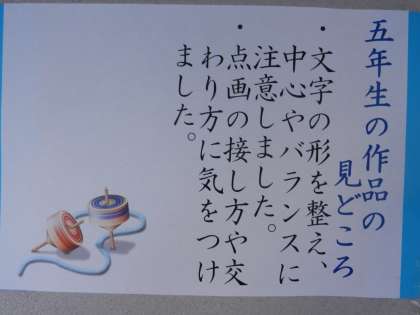 五年生の作品の
見どころ
・文字の形を整え、
中心やバランスに
注意しました。
・点画の接し方や交
わり方に気をつけ
ました。